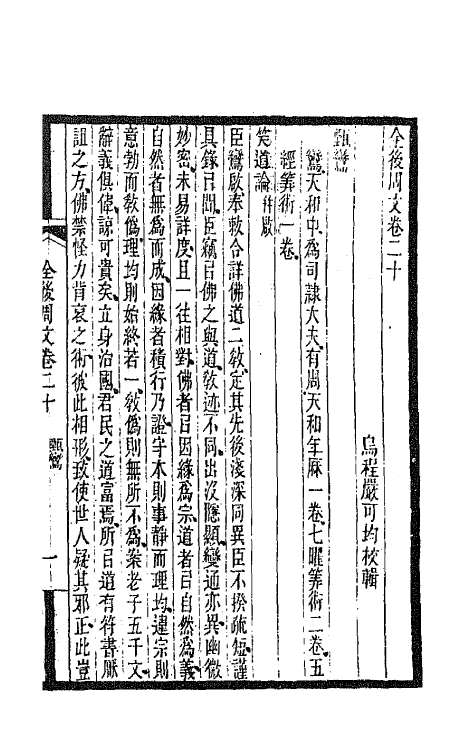 全後周文卷二十
烏程嚴可均校輯
甄鸞
鸞天和中爲司隸大夫有周天和年厤一卷七曜筭術二卷五
經筭術一卷
笑道論并啟
臣鸞啟奉敕令詳佛道二敎定其先後淺深同異臣不揆疏短謹
具錄㠯聞臣竊㠯佛之與道敎迹不同出沒隱顯變通亦異幽微
妙密未易詳度且一往相對佛者㠯因緣爲宗道者㠯自然爲義
自然者無爲而成因緣者積行乃證守本則事靜而理均違宗則
意勃而敎僞理均則始終若一敎僞則無所不爲案老子五千文
辭義俱偉諒可貴矣立身治國君民之道富焉所㠯道有符書厭
詛之方佛禁怪力背哀之術彼此相形致使世人疑其邪正此豈
全後周文卷二十
甄鸞
一